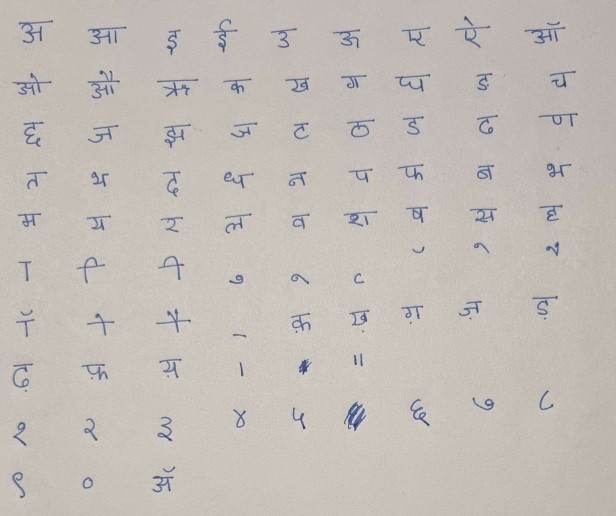 अ आ इ ई उ ऊ ए ऐ ऑ
ओ औ ऋ क ख ग घ ङ च
छ ज झ ञ ट ठ ड ढ ण
त थ द ध न प फ ब भ
म य र ल व श ष स ह
ा ि ी ु ू ृ ॅ े ै
ॉ ो ौ ् क़ ख़ ग़ ज़ ड़
ढ़ फ़ य़ । ॥
१ २ ३ ४ ५ ६ ७ ८
९ ० ॲ